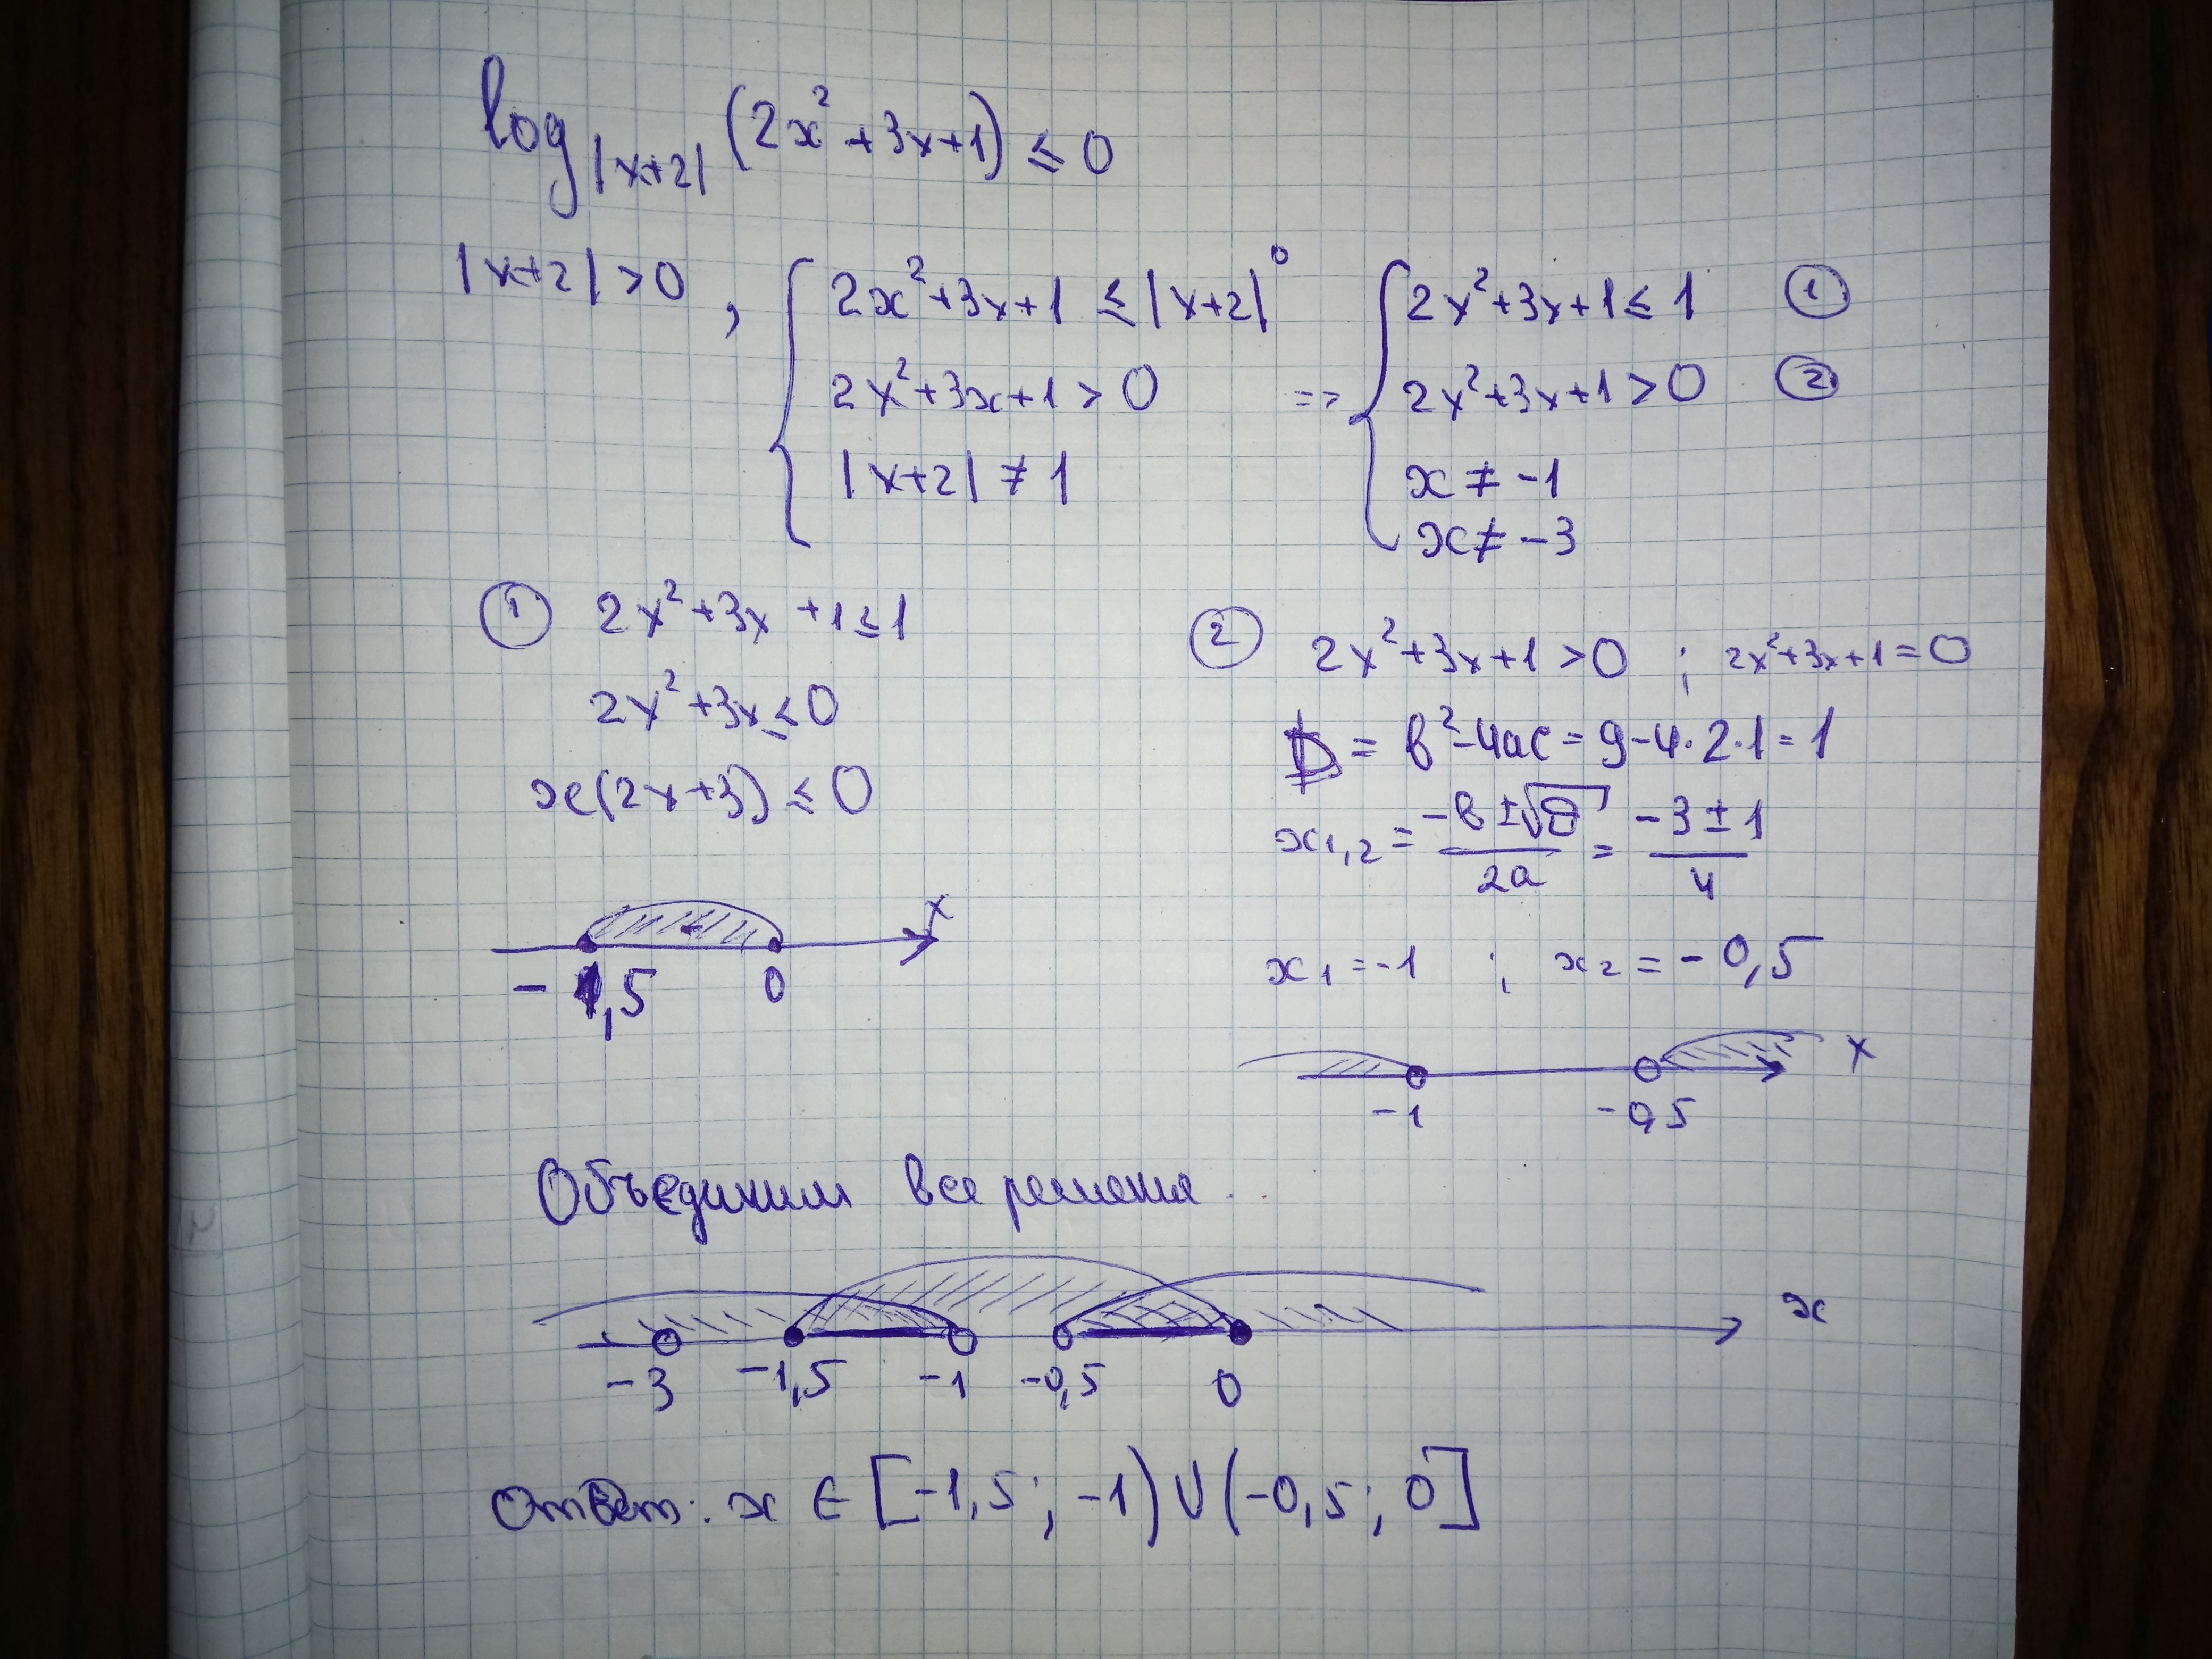 log|x+2| (2x²+3x+1) ≤ 0
|x+2|>0 , { 2x²+3x+1 ≤ |x+2|⁰ => { 2x²+3x+1 ≤ 1 ①
2x²+3x+1 > 0 2x²+3x+1 > 0 ②
|x+2| ≠ 1 x ≠ -1
x ≠ -3
① 2x²+3x+1≤1
② 2x²+3x+1>0 ; 2x²+3x+1=0
2x²+3x≤0
D = b²-4ac = 9-4·2·1=1
x(2x+3) ≤ 0
x1,2 = (-b±√D)/2a = (-3±1)/4
x
-1,5 0
x1=-1 ; x2=-0,5
x
-1 -0,5
Объединим все решения.
x
-3 -1,5 -1 -0,5 0
Ответ: x ∈ [-1,5; -1) U (-0,5; 0]